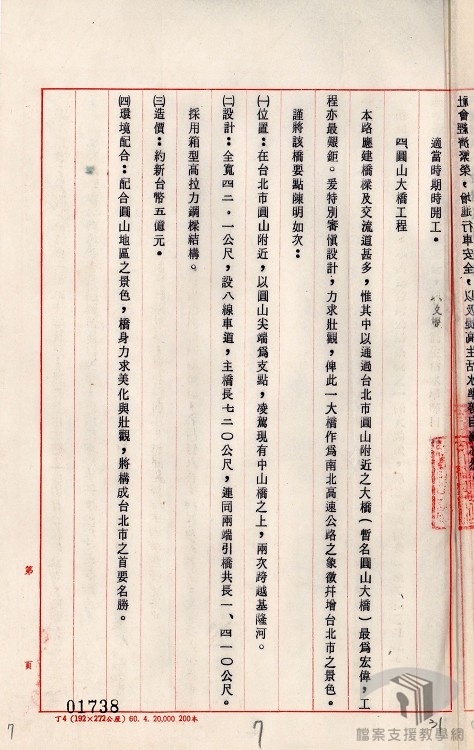 適當時期時開工。
四、圓山大橋工程
本路應建橋樑及交流道甚多，惟其中以通過台北市圓山附近之大橋（暫名圓山大橋）最爲宏偉，工
程亦最艱鉅。爰特別審愼設計，力求壯觀，俾此一大橋作爲南北高速公路之象徵幷增台北市之景色。
謹將該橋要點陳明如次：
㈠位置：在台北市圓山附近，以圓山尖端爲支點，凌駕現有中山橋之上，兩次跨越基隆河。
㈡設計：全寬四二．一公尺，設八線車道，主橋長七二〇公尺，連同兩端引橋共長一、四一〇公尺。
採用箱型高拉力鋼樑結構。
㈢造價：約新台幣五億元。
㈣環境配合：配合圓山地區之景色，橋身力求美化與壯觀，將構成台北市之首要名勝。
第　頁
01738
丁4 (192×272公厘) 60. 4. 20,000 200本
7
7
31
檔案支援教學網